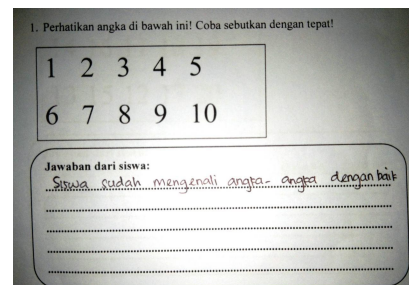 1. Perhatikan angka di bawah ini! Coba sebutkan dengan tepat!
1 2 3 4 5
6 7 8 9 10
Jawaban dari siswa:
Siswa sudah mengenali angka-angka dengan baik